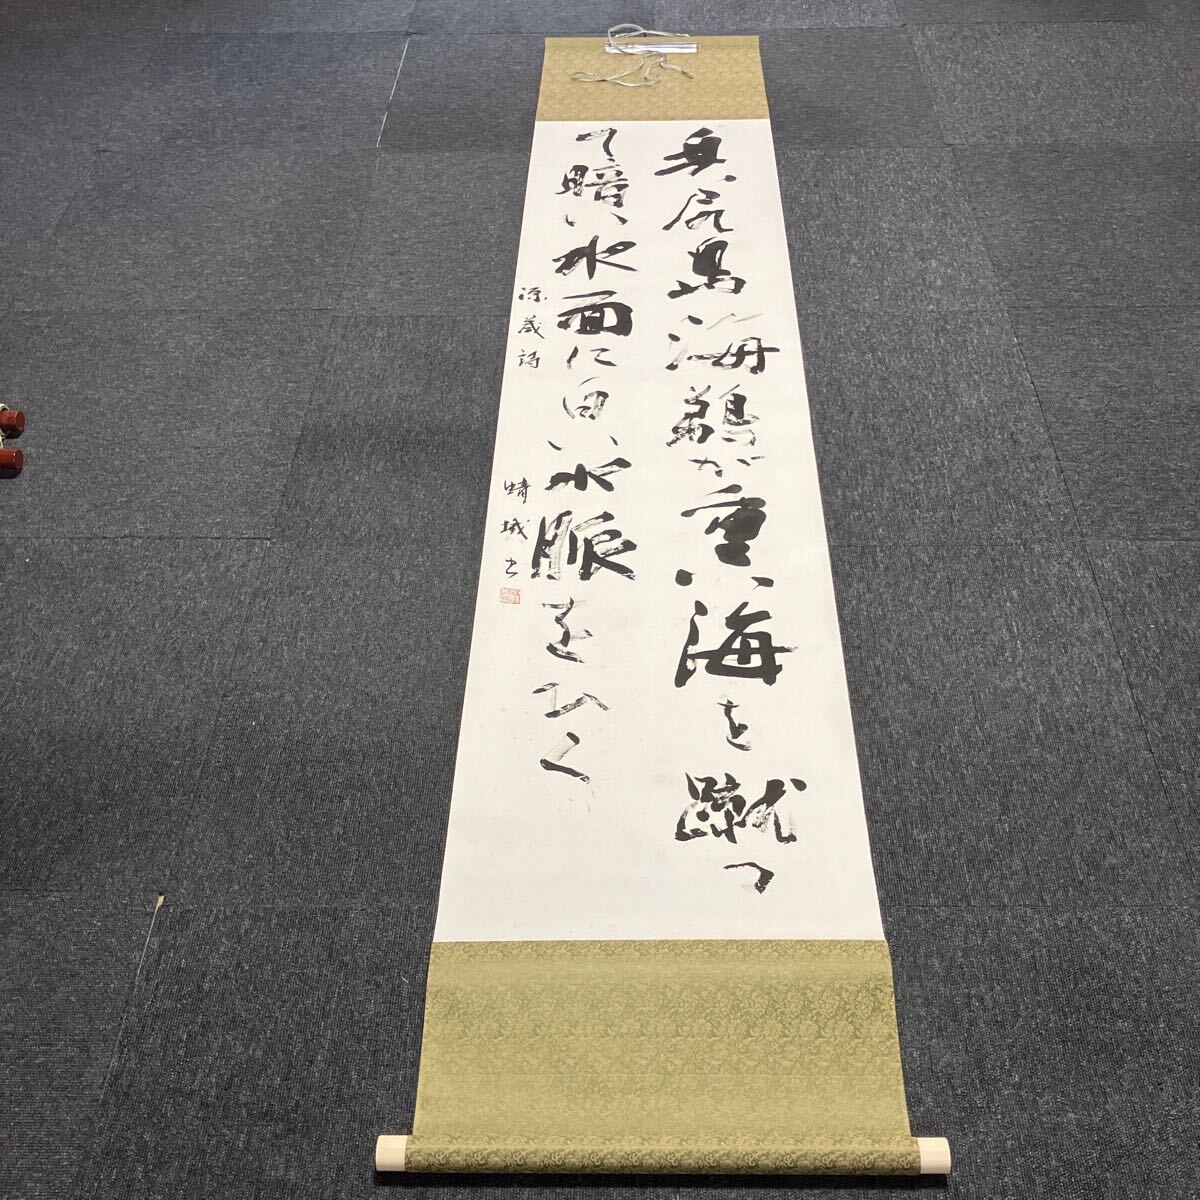 奥尻島海鵜が重い海を蹴つ
て暗い水面に白い水脈をひく
源蔵詩
蜻城書